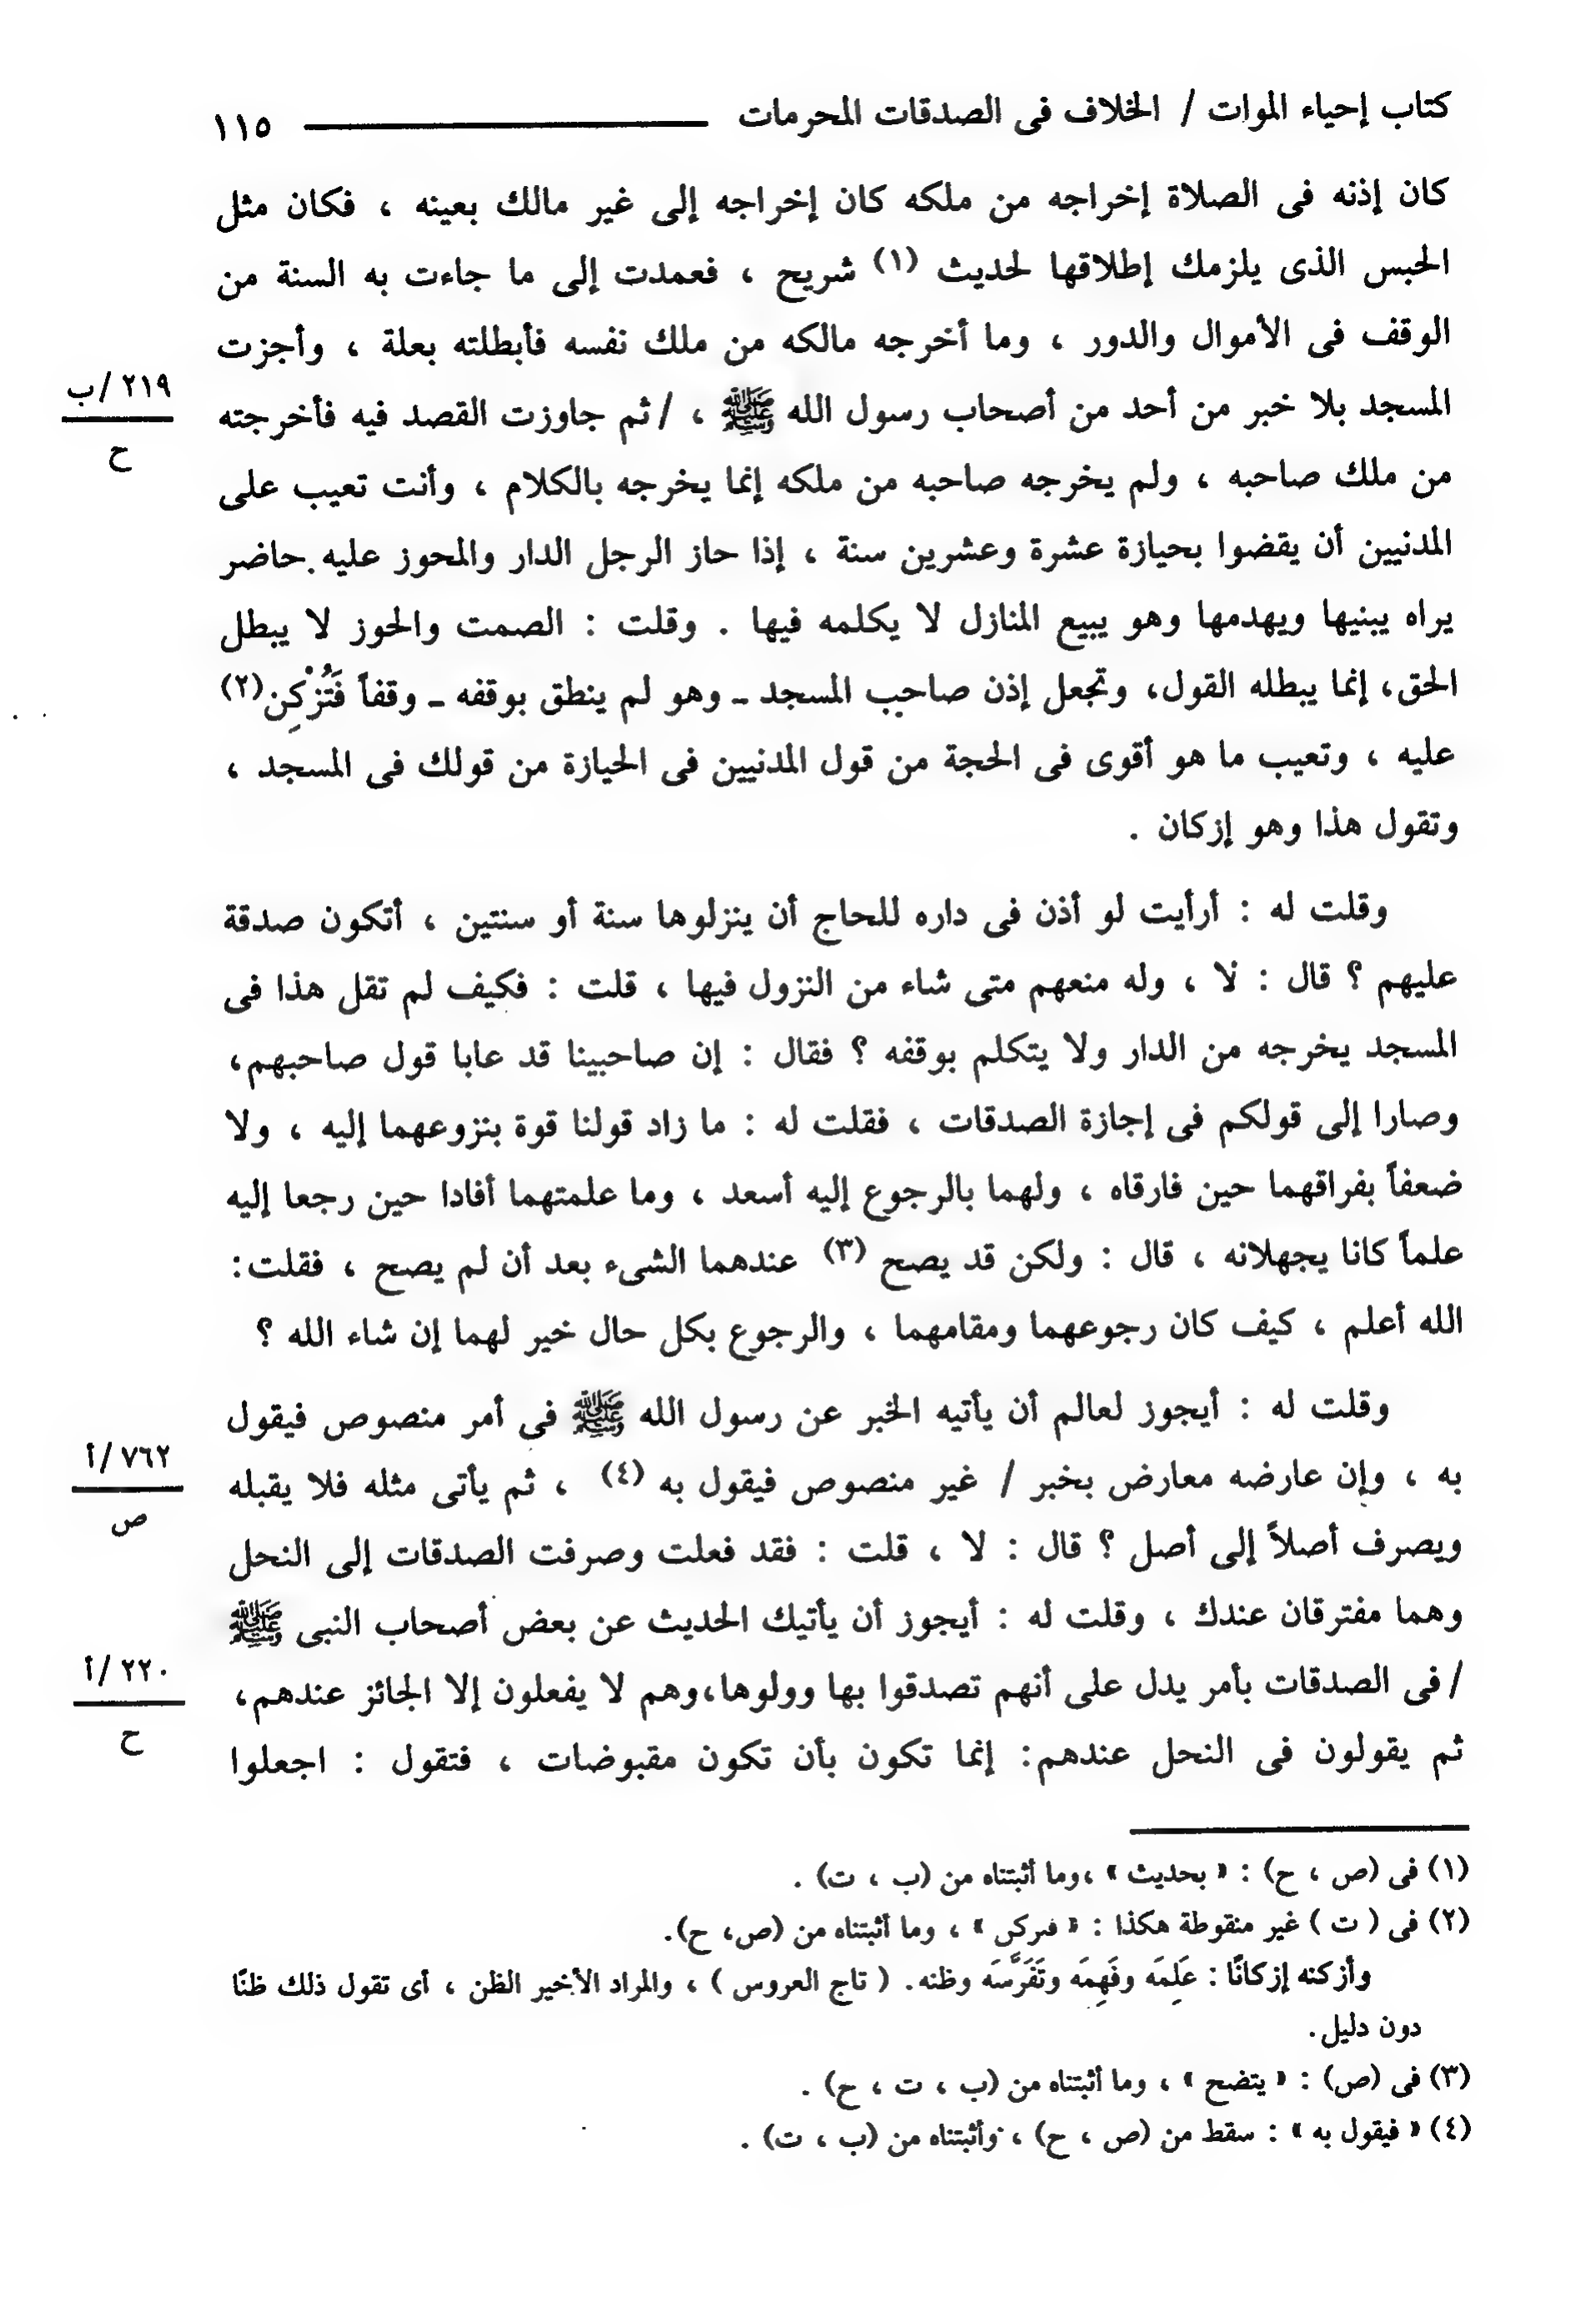 كتاب إحياء الموات / الخلاف فى الصدقات المحرمات ١١٥
كان إذنه فى الصلاة إخراجه من ملكه كان إخراجه إلى غير مالك بعينه ، فكان مثل
الحبس الذى يلزمك إطلاقها لحديث (١) شريح ، فعمدت إلى ما جاءت به السنة من
الوقف فى الأموال والدور ، وما أخرجه مالكه من ملك نفسه فأبطلته بعلة ، وأجزت
المسجد بلا خبر من أحد من أصحاب رسول الله ﷺ ، / ثم جاوزت القصد فيه فأخرجته
٢١٩ /ب
ح
من ملك صاحبه ، ولم يخرجه صاحبه من ملكه إنما يخرجه بالكلام ، وأنت تعيب على
المدنيين أن يقضوا بحيازة عشرة وعشرين سنة ، إذا حاز الرجل الدار والمحوز عليه حاضر
يراه يبنيها ويهدمها وهو يبيع المنازل لا يكلمه فيها . وقلت : الصمت والحوز لا يبطل
الحق، إنما يبطله القول، وتجعل إذن صاحب المسجد ـ وهو لم ينطق بوقفه ـ وقفاً فَتُزْكِن(٢)
عليه ، وتعيب ما هو أقوى فى الحجة من قول المدنيين فى الحيازة من قولك فى المسجد ،
وتقول هذا وهو إزكان .
وقلت له : أرأيت لو أذن فى داره للحاج أن ينزلوها سنة أو سنتين ، أتكون صدقة
عليهم ؟ قال : لا ، وله منعهم متى شاء من النزول فيها ، قلت : فكيف لم تقل هذا فى
المسجد يخرجه من الدار ولا يتكلم بوقفه ؟ فقال : إن صاحبينا قد عابا قول صاحبهم،
وصارا إلى قولكم فى إجازة الصدقات ، فقلت له : ما زاد قولنا قوة بنزوعهما إليه ، ولا
ضعفاً بفراقهما حين فارقاه ، ولهما بالرجوع إليه أسعد ، وما علمتهما أفادا حين رجعا إليه
علماً كانا يجهلانه ، قال : ولكن قد يصح (٣) عندهما الشىء بعد أن لم يصح ، فقلت:
الله أعلم ، كيف كان رجوعهما ومقامهما ، والرجوع بكل حال خير لهما إن شاء الله ؟
وقلت له : أيجوز لعالم أن يأتيه الخبر عن رسول الله ﷺ فى أمر منصوص فيقول
به ، وإن عارضه معارض بخبر / غير منصوص فيقول به (٤) ، ثم يأتى مثله فلا يقبله
٧٦٢ /أ
ص
ويصرف أصلاً إلى أصل ؟ قال : لا ، قلت : فقد فعلت وصرفت الصدقات إلى النحل
وهما مفترقان عندك ، وقلت له : أيجوز أن يأتيك الحديث عن بعض أصحاب النبى ﷺ
/ فى الصدقات بأمر يدل على أنهم تصدقوا بها وولوها،وهم لا يفعلون إلا الجائز عندهم،
٢٢٠ /أ
ح
ثم يقولون فى النحل عندهم: إنما تكون بأن تكون مقبوضات ، فتقول : اجعلوا
(١) فى (ص ، ح) : « بحديث » ،وما أثبتناه من (ب ، ت) .
(٢) فى ( ت ) غير منقوطة هكذا : « ڡٮركں » ، وما أثبتناه من (ص، ح).
وأزكنه إزكانًا : عَلِمَه وفَهِمَه وتَفَرَّسَه وظنه. ( تاج العروس ) ، والمراد الأخير الظن ، أى تقول ذلك ظنًا
دون دليل.
(٣) فى (ص) : « يتضح » ، وما أثبتناه من (ب ، ت ، ح) .
(٤) « فيقول به » : سقط من (ص ، ح) ، وأثبتناه من (ب ، ت) .